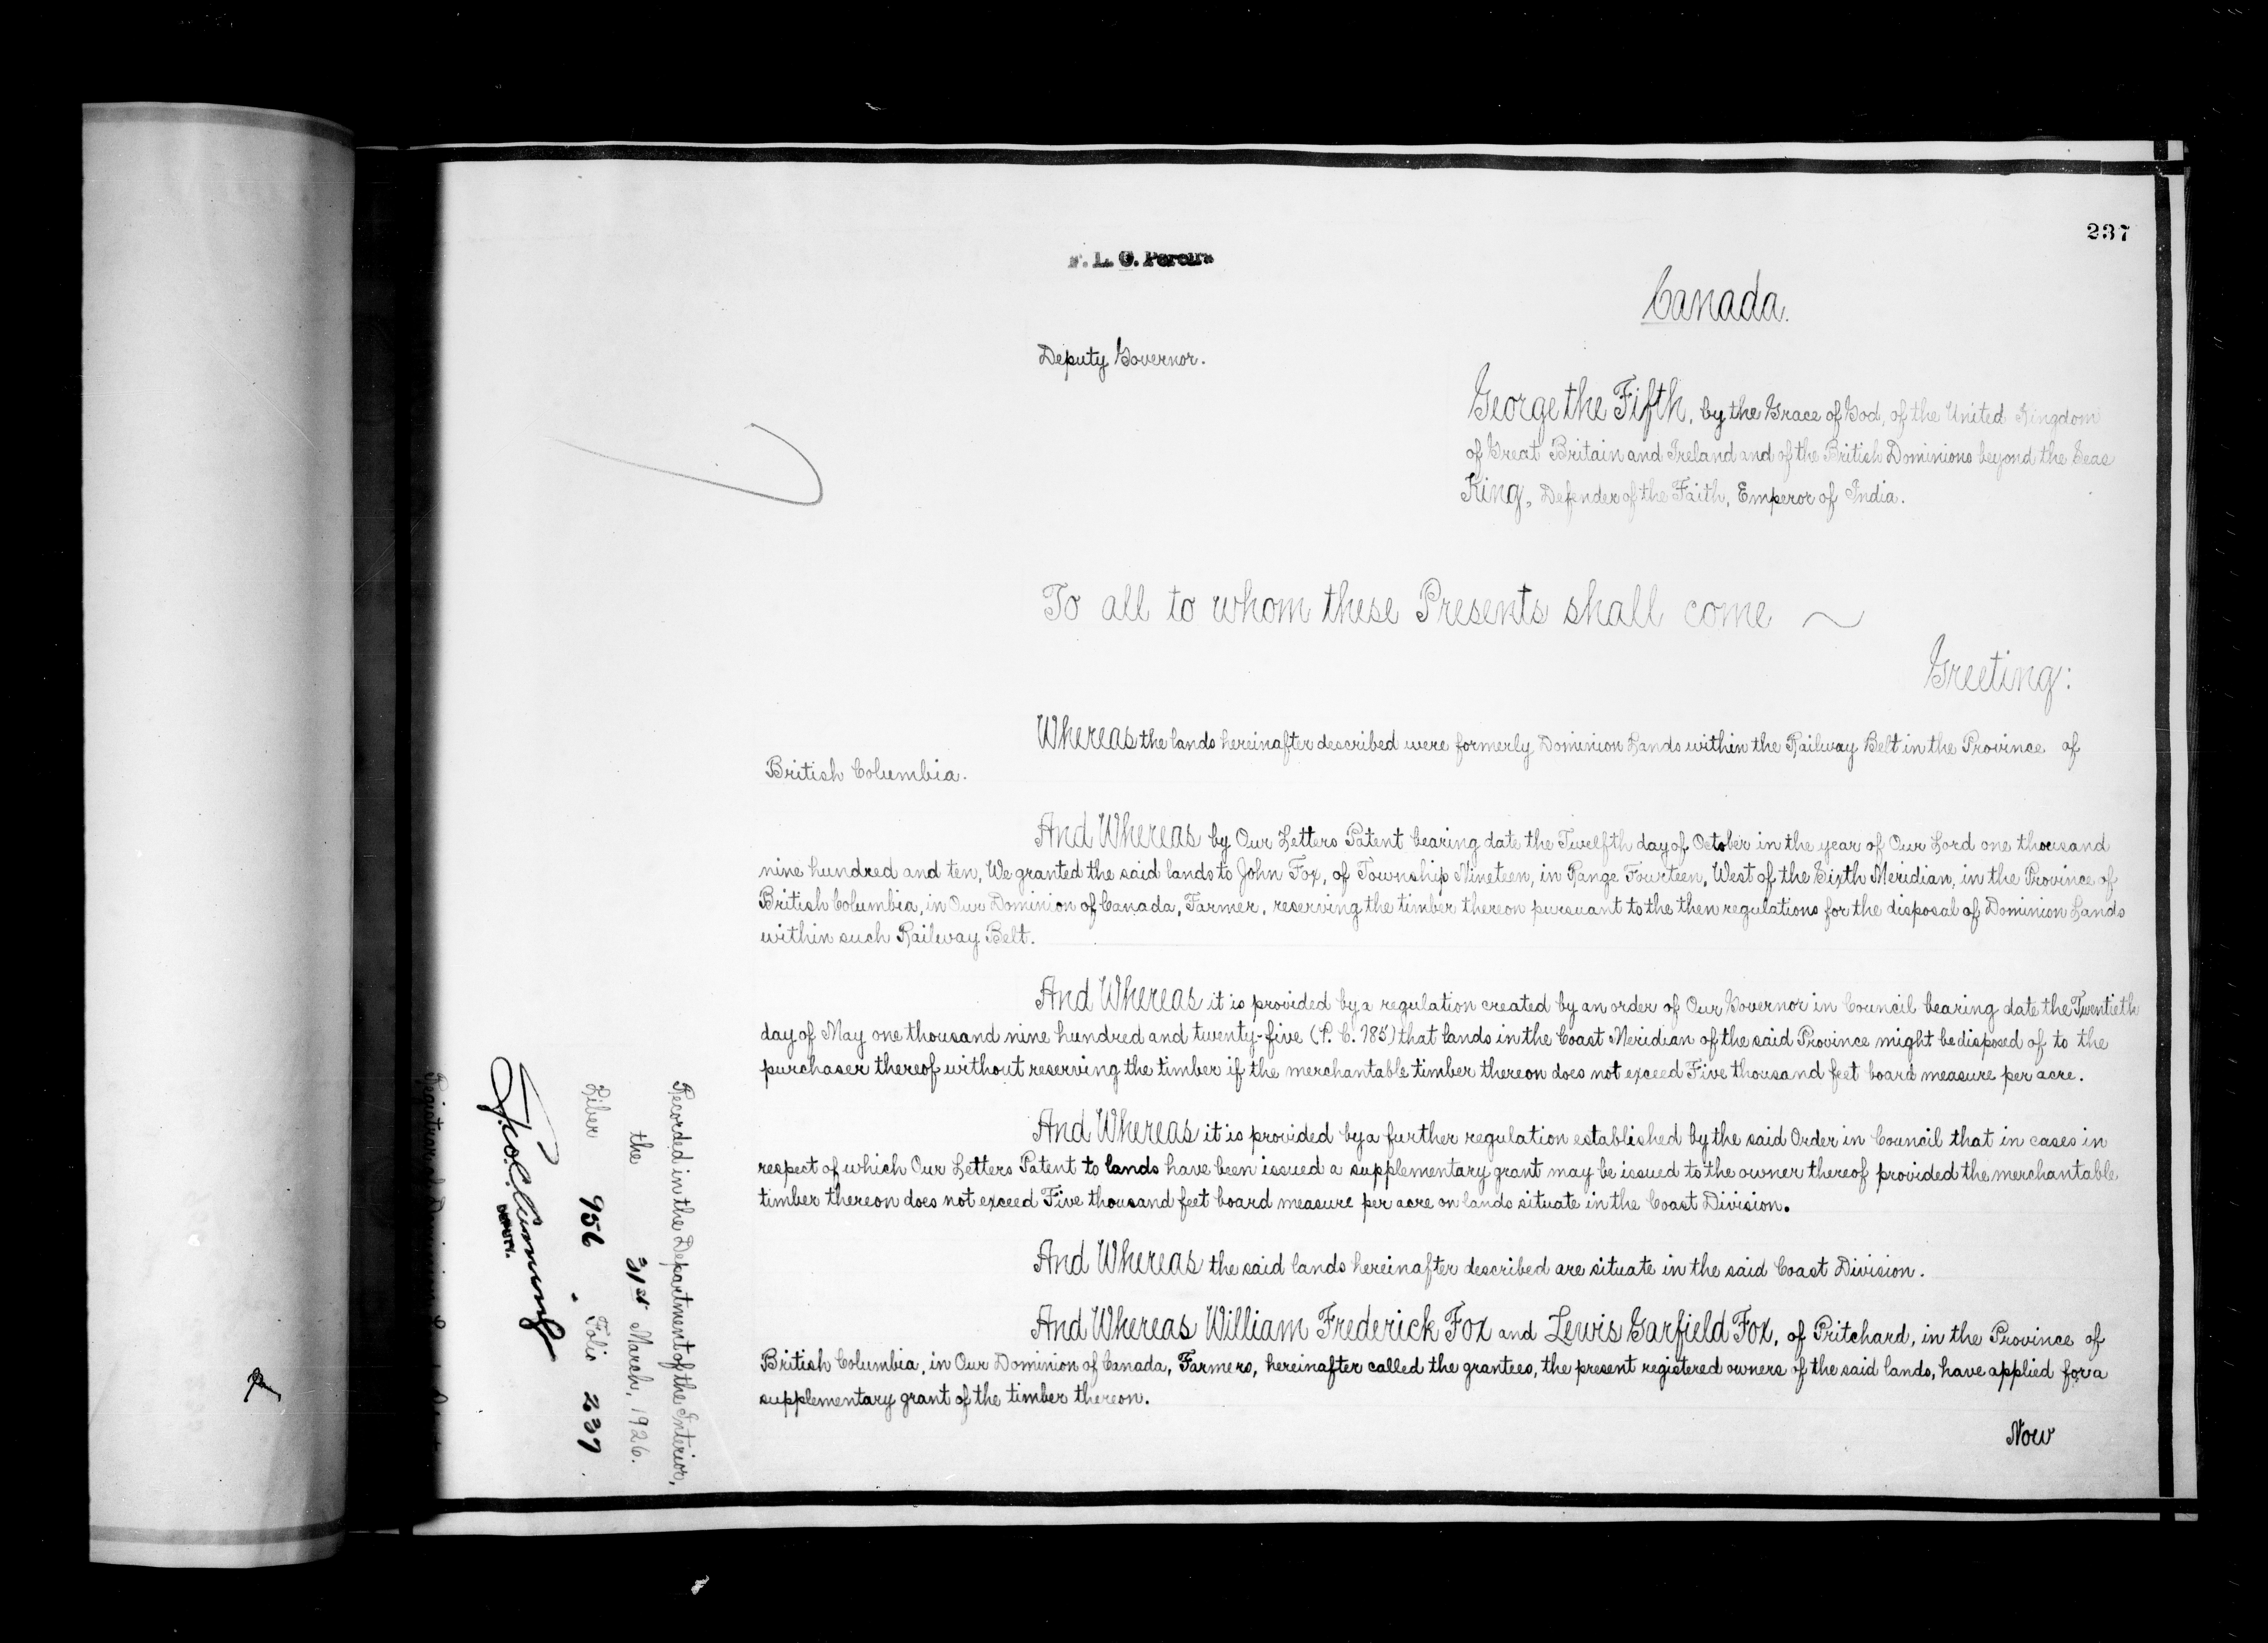 237
F. L. C. Pereira
Canada.
Deputy Governor.
George the Fifth, by the Grace of God, of the United Kingdom
of Great Britain and Ireland and of the British Dominions beyond the Seas
King, Defender of the Faith, Emperor of India.
To all to whom these Presents shall come
Greeting:
Whereas the lands hereinafter described were formerly Dominion Lands within the Railway Belt in the Province of
British Columbia.
And Whereas by Our Letters Patent bearing date the Twelfth day of October in the year of Our Lord one thousand
nine hundred and ten, We granted the said lands to John Fox, of Township Nineteen, in Range Fourteen, West of the Sixth Meridian, in the Province of
British Columbia, in Our Dominion of Canada, Farmer, reserving the timber thereon pursuant to the then regulations for the disposal of Dominion Lands
within such Railway Belt.
And Whereas it is provided by a regulation created by an order of Our Governor in Council bearing date the Twentieth
day of May one thousand nine hundred and twenty-five (P. C. 785) that lands in the Coast Meridian of the said Province might be disposed of to the
purchaser thereof without reserving the timber if the merchantable timber thereon does not exceed Five thousand feet board measure per acre.
And Whereas it is provided by a further regulation established by the said Order in Council that in cases in
respect of which Our Letters Patent to lands have been issued a supplementary grant may be issued to the owner thereof provided the merchantable
timber thereon does not exceed Five thousand feet board measure per acre on lands situate in the Coast Division.
And Whereas the said lands hereinafter described are situate in the said Coast Division.
And Whereas William Frederick Fox and Lewis Garfield Fox, of Pritchard, in the Province of
British Columbia, in Our Dominion of Canada, Farmers, hereinafter called the grantees, the present registered owners of the said lands, have applied for a
supplementary grant of the timber thereon.
Now
Recorded in the Department of the Interior,
the 31st March, 1926.
Liber 956 Folio 237
DEPUTY.
Registrar of Dominion